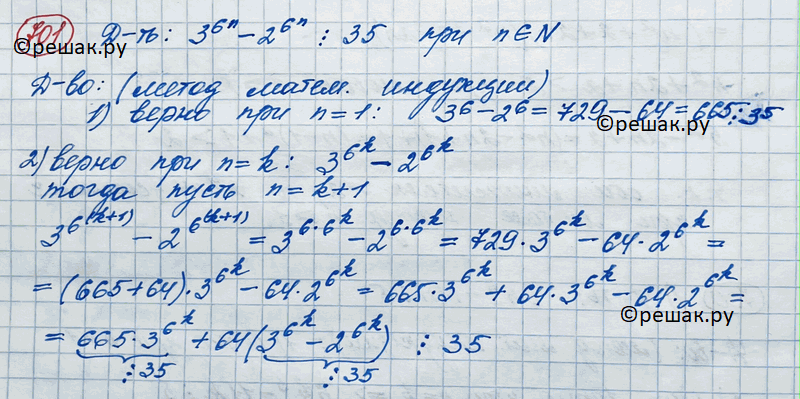 701 Д-ть: 3^6^n - 2^6^n ⋮ 35 при n∈N
©решак.ру
Д-во: (метод матем. индукции)
1) верно при n=1: 3^6 - 2^6 = 729 - 64 = 665 ⋮ 35
©решак.ру
2) верно при n=k: 3^6^k - 2^6^k
тогда пусть n=k+1
3^6^(k+1) - 2^6^(k+1) = 3^6·6^k - 2^6·6^k = 729·3^6^k - 64·2^6^k =
= (665+64)·3^6^k - 64·2^6^k = 665·3^6^k + 64·3^6^k - 64·2^6^k =
©решак.ру
= 665·3^6^k + 64(3^6^k - 2^6^k) ⋮ 35
⋮35 ⋮35